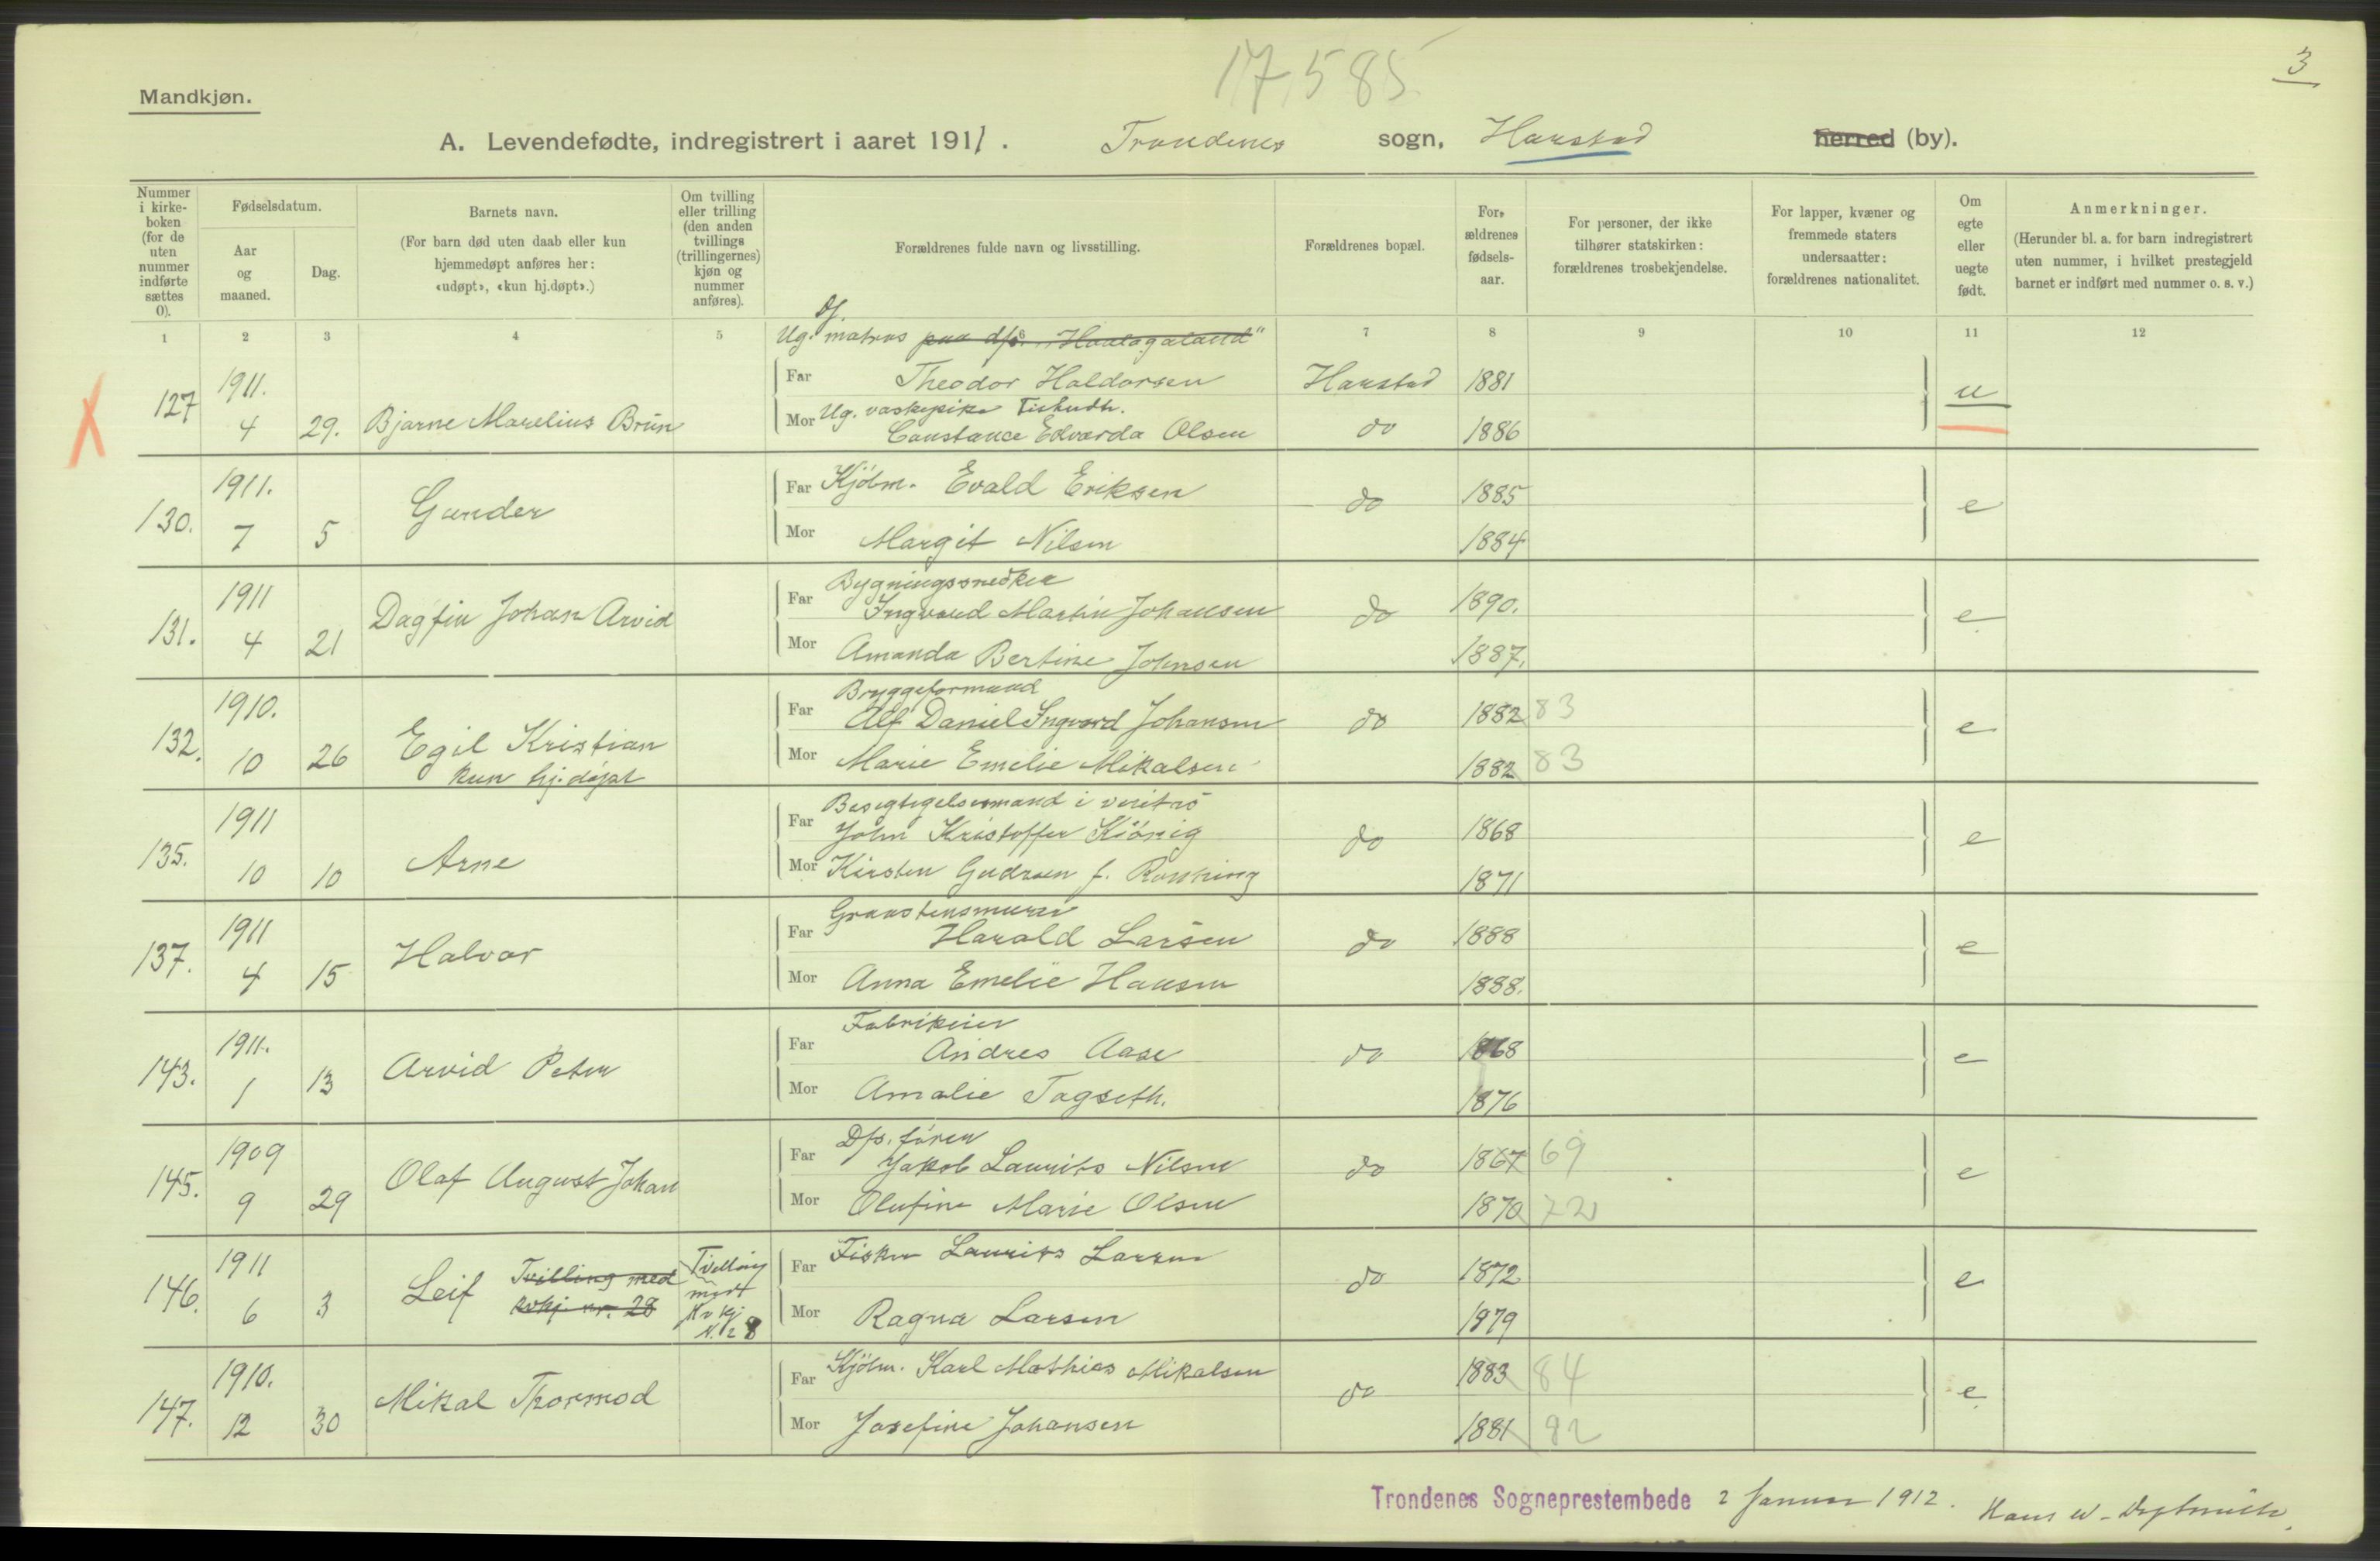 17,585
3
Mandkjøn.
A. Levendefødte, indregistrert i aaret 1911. Trondenes sogn, Harstad herred (by).
Nummer i kirke-boken (for de uten nummer indførte sættes 0).
Fødselsdatum.
Aar og maaned.
Dag.
Barnets navn.
(For barn død uten daab eller kun hjemmedøpt anføres her: «udøpt», «kun hj.døpt».)
Om tvilling eller trilling (den anden tvillings (trillingernes) kjøn og nummer anføres).
Forældrenes fulde navn og livsstilling.
Forældrenes bopæl.
For-ældrenes fødsels-aar.
For personer, der ikke tilhører statskirken: forældrenes trosbekjendelse.
For lapper, kvæner og fremmede staters undersaatter: forældrenes nationalitet.
Om egte eller uegte født.
Anmerkninger.
(Herunder bl. a. for barn indregistrert uten nummer, i hvilket prestegjeld barnet er indført med nummer o. s. v.)
1 2 3 4 5 7 8 9 10 11 12
Ug. matros paa dfs. "Haalogaland"
127 1911. 4 29. Bjarne Marelius Brun Far Theodor Haldorsen Harstad 1881 u
Mor Ug. vaskepike
Constance Edvarda Olsen do 1886
130. 1911. 7 5 Gunder Far Kjölm. Evald Eriksen do 1885 e
Mor Margit Nilsen 1884
131. 1911 4 21 Dagfin Johan Arvid Far Bygningssnedker
Ingvard Martin Johansen do 1890. e
Mor Amanda Bertine Johnsen 1887.
132. 1910. 10 26 Egil Kristian
kun hj.døpt
Far Bryggeformand
Alf Daniel Ingvard Johansen do 1882 83 e
Mor Marie Emelie Mikalsen 1882 83
135. 1911 10 10 Arne Far Besigtigelsesmand i veritas
John Kristoffer Kiönig do 1868 e
Mor Kirsten Gudrun f. Rønning 1871
137. 1911 4 15 Halvar Far Graastensmurer
Harald Larsen do 1888 e
Mor Anna Emelie Hansen 1888.
143. 1911. 1 13 Arvid Peter Far Fabrikeier
Andres Aase do 1868 e
Mor Amalie Tagseth. 1876
145. 1909 9 29 Olaf August Johan Far Dfs. förer
Jakob Laurits Nilsen do 1867 69 e
Mor Olufine Marie Olsen 1870 72
146. 1911 6 3 Leif Tvilling med
kvkj. nr. 28
Tvilling
med
Kvkj
N. 28
Far Fisker Laurits Larsen do 1872 e
Mor Ragna Larsen 1879
147. 1910. 12 30 Mikal Thormod Far Kjölm. Karl Mathias Mikalsen do 1883 84 e
Mor Josefine Johansen 1881 82
Trondenes Sogneprestembede 2 Januar 1912.
Hans W.